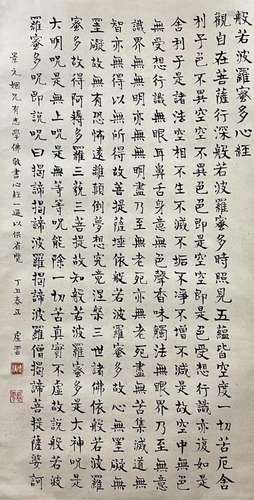 般若波羅蜜多心經
觀自在菩薩行深般若波羅蜜多時照見五蘊皆空度一切苦厄舍
利子色不異空空不異色色即是空空即是色受想行識亦復如是
舍利子是諸法空相不生不滅不垢不淨不增不減是故空中無色
無受想行識無眼耳鼻舌身意無色聲香味觸法無眼界乃至無意
識界無無明亦無無明盡乃至無老死亦無老死盡無苦集滅道無
智亦無得以無所得故菩提薩埵依般若波羅蜜多故心無罣礙無
罣礙故無有恐怖遠離顛倒夢想究竟涅槃三世諸佛依般若波羅
蜜多故得阿耨多羅三藐三菩提故知般若波羅蜜多是大神呪是
大明呪是無上呪是無等等呪能除一切苦真實不虛故說般若波
羅蜜多呪即說呪曰揭諦揭諦波羅揭諦波羅僧揭諦菩提薩婆訶
景元姻兄有志學佛敬書心經一遍以供省覽 丁丑春正 虛雲